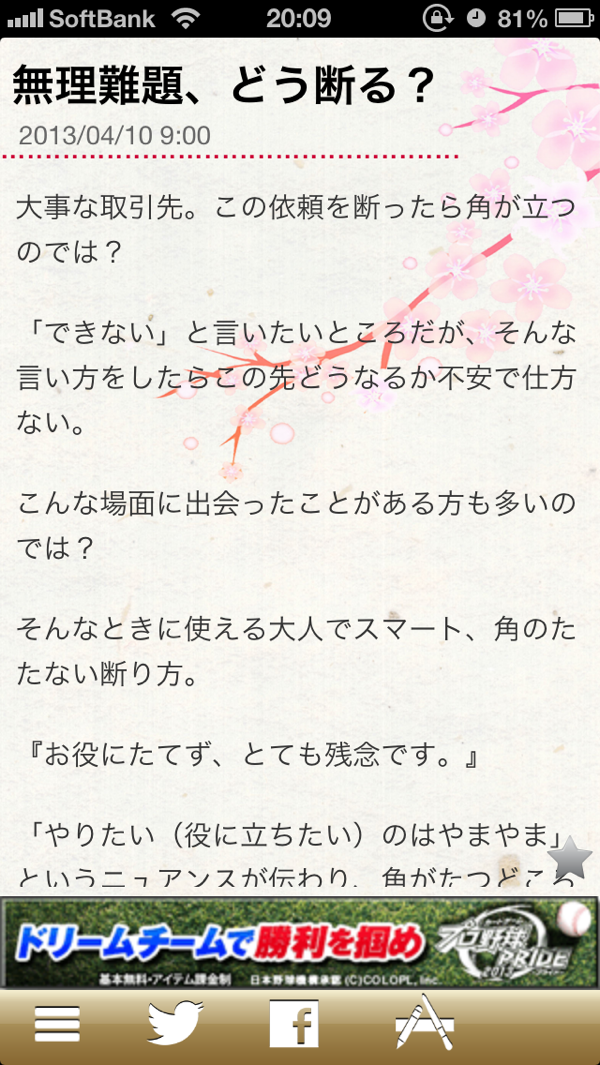 SoftBank 20:09 81%
無理難題、どう断る？
2013/04/10 9:00
大事な取引先。この依頼を断ったら角が立つ
のでは？
「できない」と言いたいところだが、そんな
言い方をしたらこの先どうなるか不安で仕方
ない。
こんな場面に出会ったことがある方も多いの
では？
そんなときに使える大人でスマート、角のた
たない断り方。
『お役にたてず、とても残念です。』
「やりたい（役に立ちたい）のはやまやま」
というニュアンスが伝わり、角がたつどころ
ドリームチームで勝利を掴め
プロ野球
PRIDE
2013
基本無料・アイテム課金制 日本野球機構承認 (C)COLOPL, Inc.